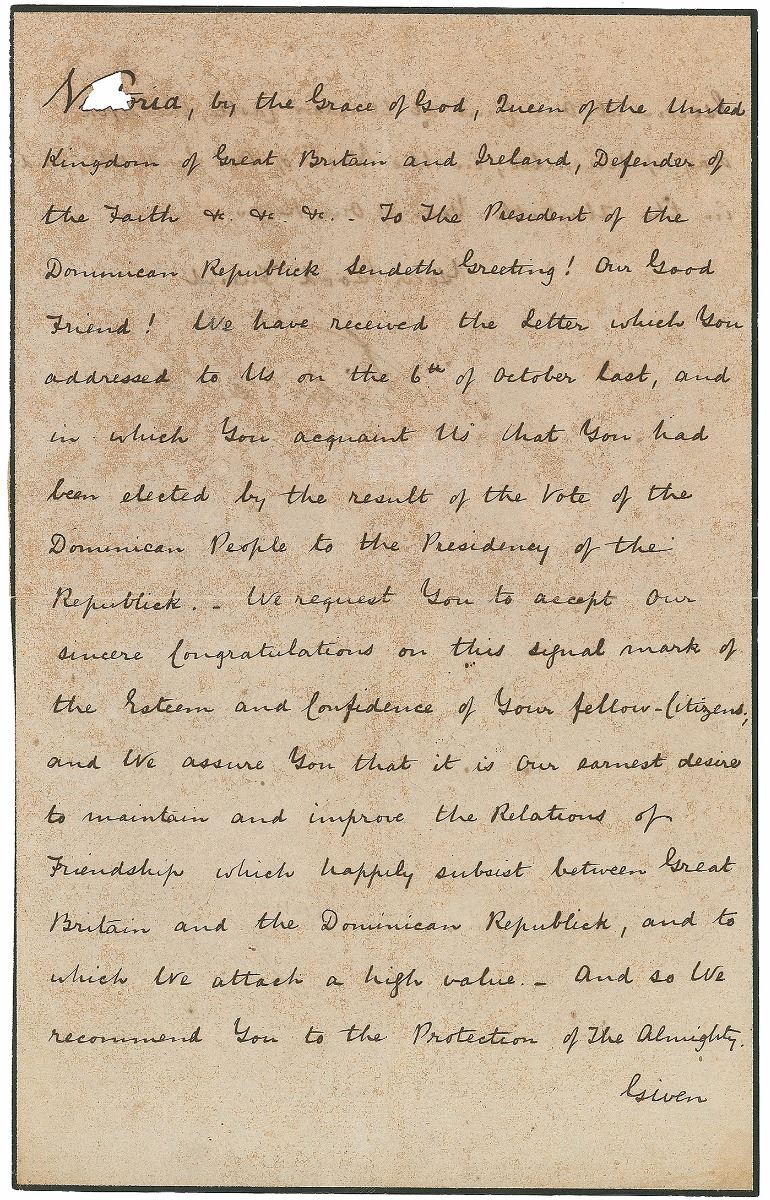 Victoria, by the Grace of God, Queen of the United
Kingdom of Great Britain and Ireland, Defender of
the Faith &c. &c. &c. - To The President of the
Dominican Republick Sendeth Greeting! Our Good
Friend! We have received the Letter which You
addressed to Us on the 6th of October last, and
in which You acquaint Us that You had
been elected by the result of the Vote of the
Dominican People to the Presidency of the
Republick. - We request You to accept Our
sincere Congratulations on this signal mark of
the Esteem and Confidence of Your fellow-Citizens,
and We assure You that it is Our earnest desire
to maintain and improve the Relations of
Friendship which happily subsist between Great
Britain and the Dominican Republick, and to
which We attach a high value. - And so We
recommend You to the Protection of The Almighty.
Given